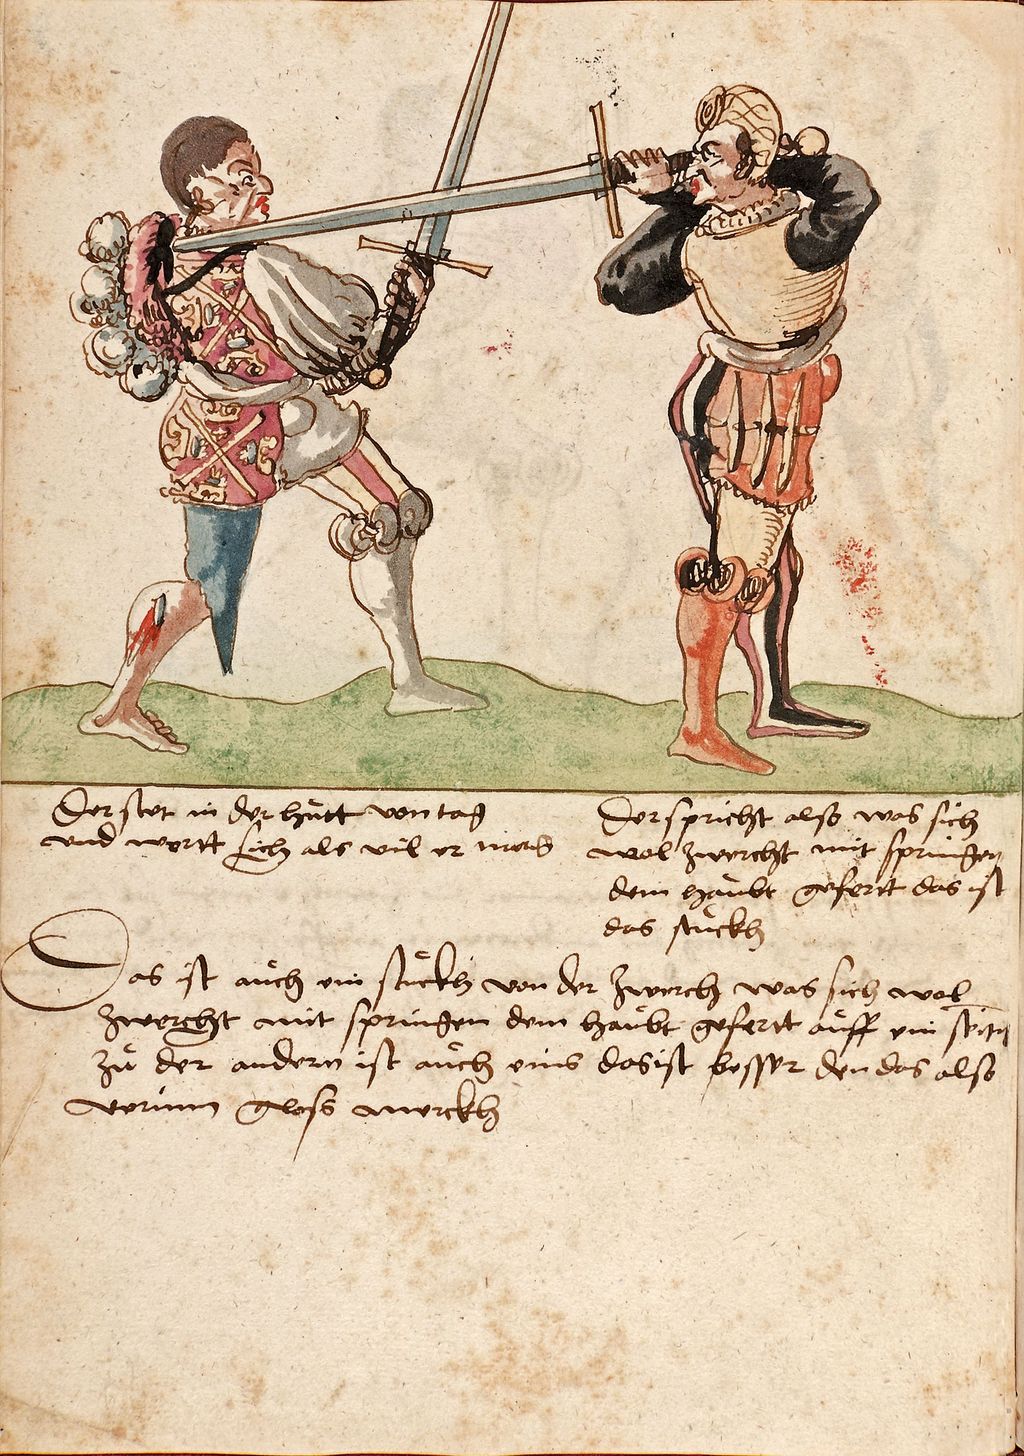 Der stet in der hůtt von tag
und wertt sich als vil er mag
Der spricht also was sich
wol zwercht mit springen
dem haubt gefertt das ist
das stůckh
Das ist aůch ein stůckh von der zwerch was sich wol
zwercht mit springen dem haůbt gefertt aůff ein seiten
zů der andern ist aůch eins das ist besser den das also
vernim gloss merckh